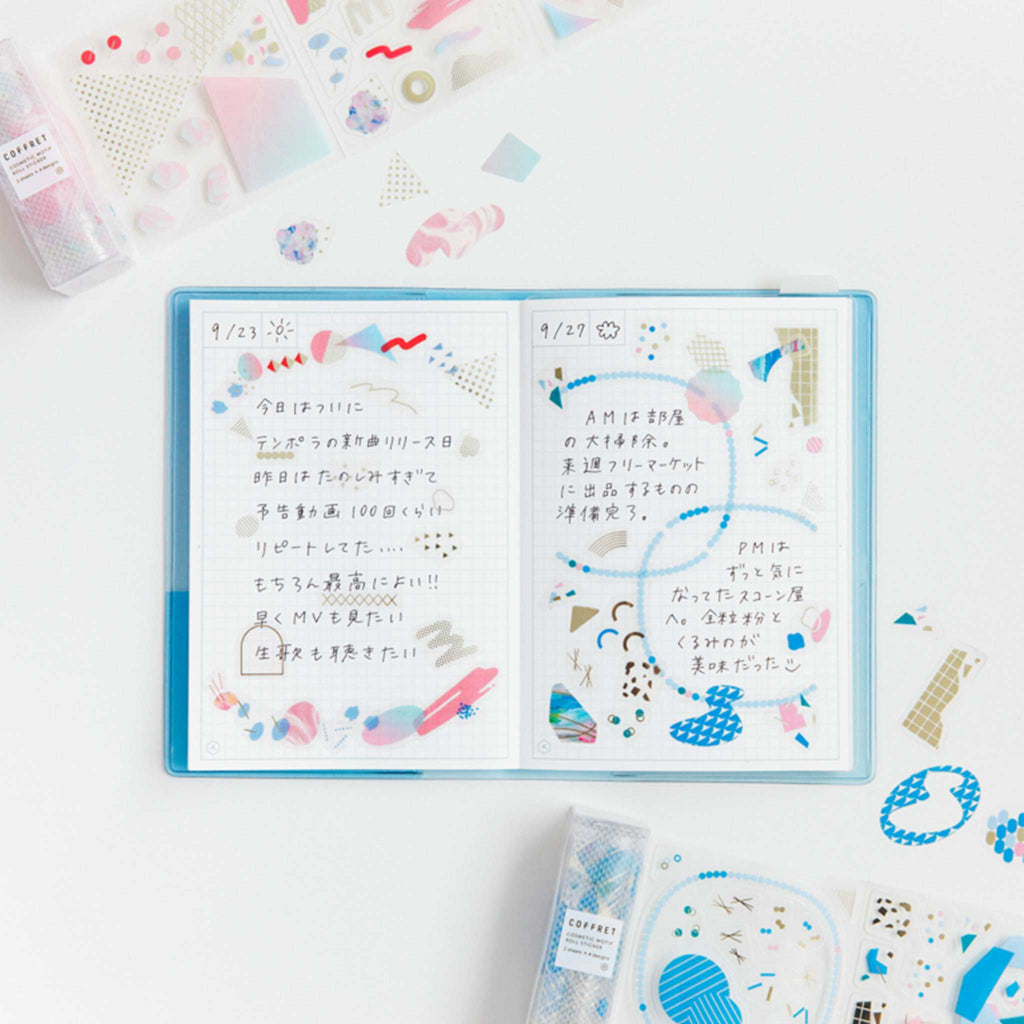 COFFRET
COSMETIC MOTIF
ROLL STICKER
2 sheets × 4 designs
9/23
今日はついに
テンポラの新曲リリース日
昨日はたのしみすぎて
予告動画100回くらい
リピートしてた....
もちろん最高によい!!
早くMVも見たい
生歌も聴きたい
9/27
AMは部屋
の大掃除。
来週フリーマーケット
に出品するものの
準備完了。
PMは
ずっと気に
なってたスコーン屋
へ。全粒粉と
くるみのが
美味だった
COFFRET
COSMETIC MOTIF
ROLL STICKER
2 sheets × 4 designs